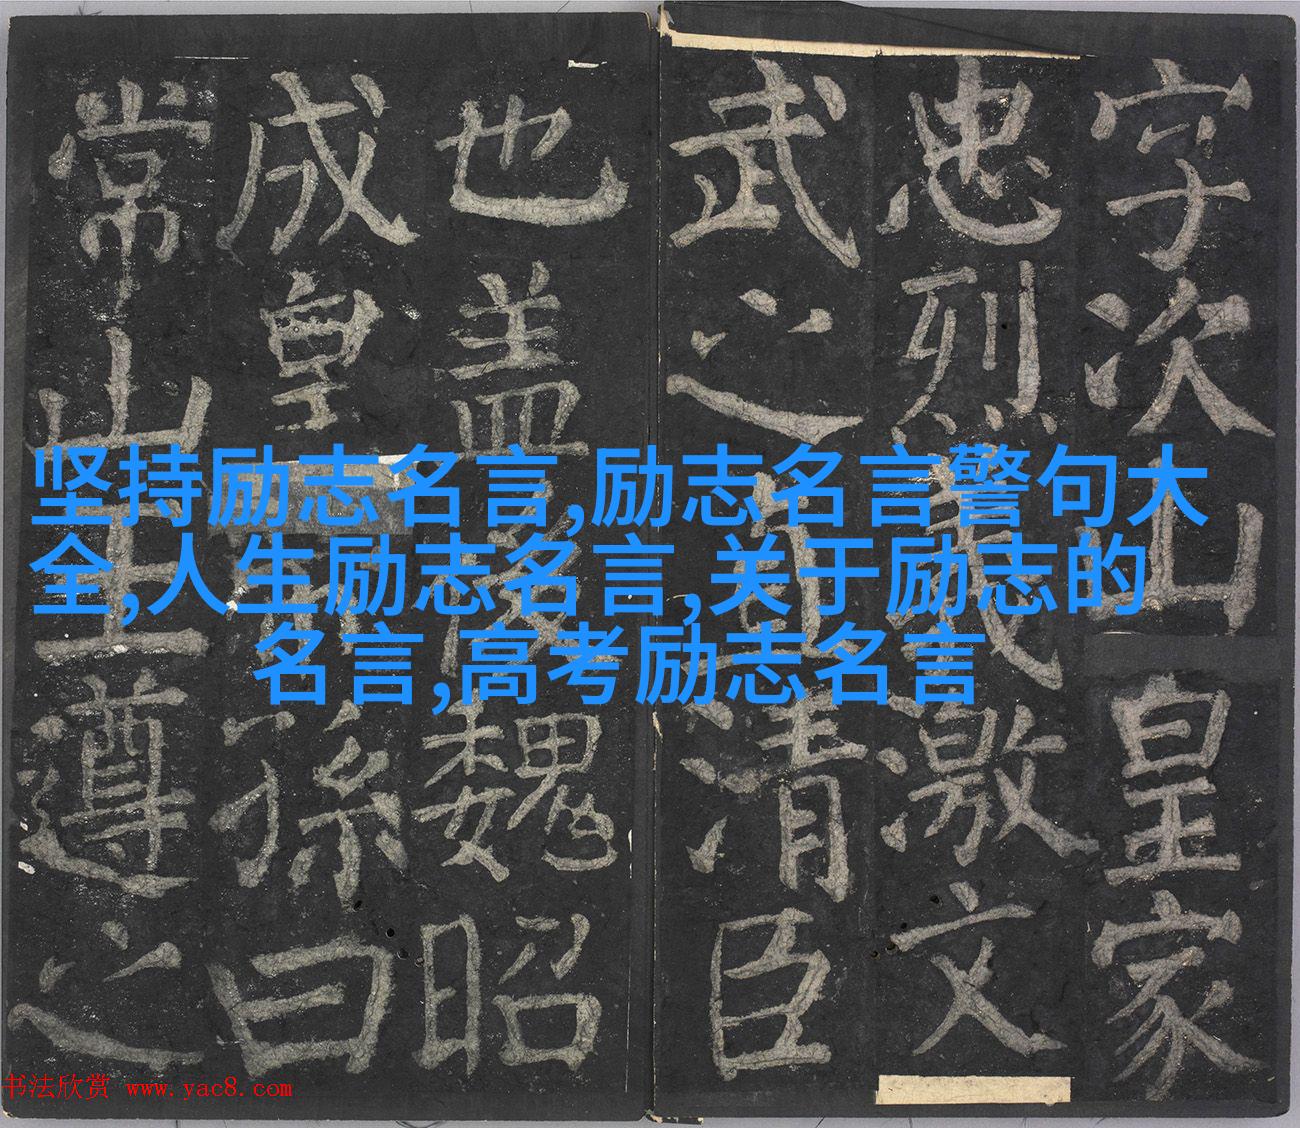 字次山皇家
忠烈義激文
武之清臣
也盖後魏昭
成皇孫曰
常山王遵之
坚持励志名言,励志名言警句大
全,人生励志名言,关于励志的
名言,高考励志名言
书法欣赏 www.yac8.com